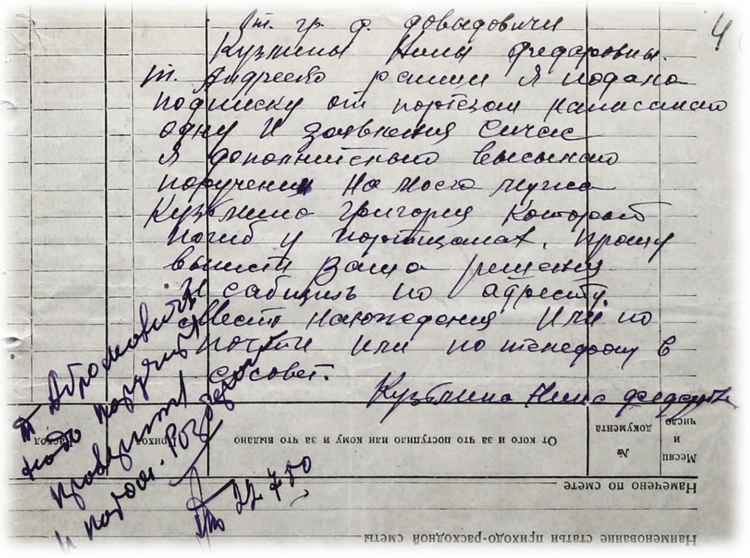 От. гр. д. Довыдовичи
Кузьмины Нины Федаровны.
т. Андреево раньши я подала
подписку от партезан написанаю
одну и заявления сичас
я дополнительно высылаю
поручении на моего мужа
Кузьмина Григория который
погиб у партизанах. Прошу
вынисти Ваша решения
и сабщить по адресу
место нахождения или по
почте или по телефону в
с совет.
Кузьмина Нина Федаровна
4
т Абрамович
надо поручить
проверить
и потом.
22 7
Месяц и число
№ документа
От кого и за что поступило или кому и за что выдано
Приход
Расход
Намечено по смете
Наименование статьи приходо-расходной сметы